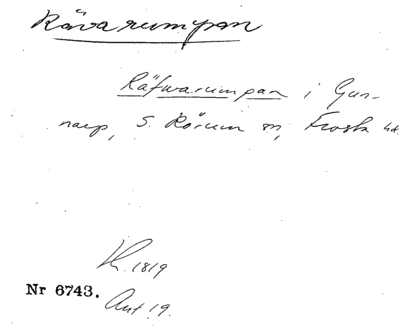 Rävarumpan
Räfwarumpan i Gun-
narp, S. Rörum sn, Frosta hd.
1819
Nr 6743. Ant 19.